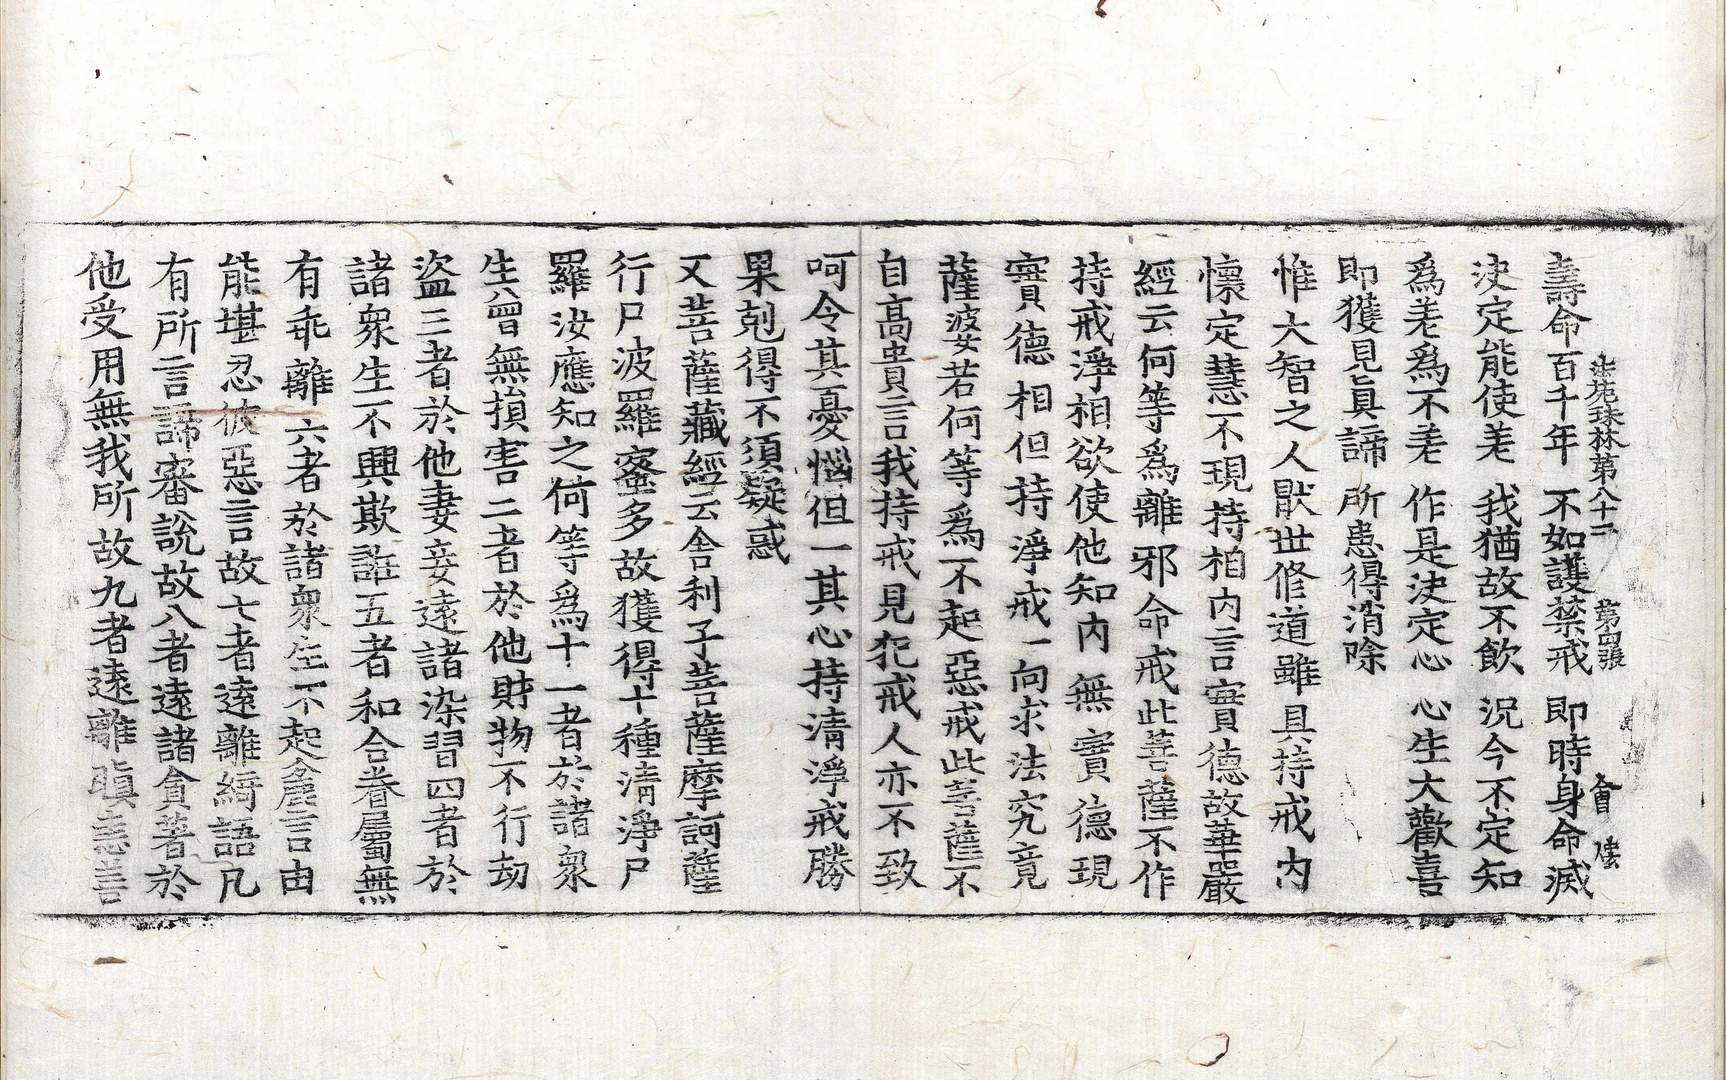 法苑珠林第八十二 第四張 會
壽命百千年 不如護禁戒 即時身命滅
決定能使差 我猶故不飲 況今不定知
爲差爲不差 作是決定心 心生大歡喜
即獲見眞諦 所患得消除
惟大智之人猒世修道雖具持戒內
懷定慧不現持相內言實德故華嚴
經云何等爲離邪命戒此菩薩不作
持戒淨相欲使他知內無實德現
實德相但持淨戒一向求法究竟
薩婆若何等爲不起惡戒此菩薩不
自高貴言我持戒見犯戒人亦不致
呵令其憂惱但一其心持淸淨戒勝
果剋得不須疑惑
又菩薩藏經云舍利子菩薩摩訶薩
行尸波羅蜜多故獲得十種清淨尸
羅汝應知之何等爲十一者於諸衆
生曾無損害二者於他財物不行劫
盜三者於他妻妾遠諸染習四者於
諸衆生不興欺誑五者和合眷屬無
有乖離六者於諸衆生不起麁言由
能堪忍彼惡言故七者遠離綺語凡
有所言諦審說故八者遠諸貪著於
他受用無我所故九者遠離瞋恚善